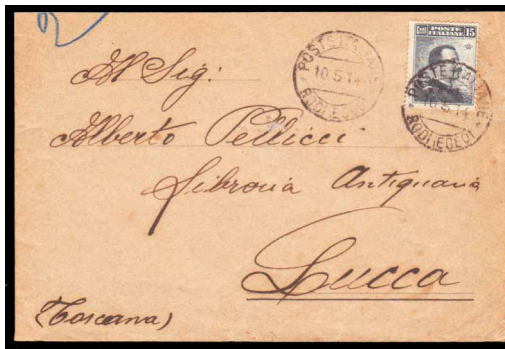 2
POSTE ITALIANE
15
POSTE ITALIANE
10.5.14
RODI (EGEO)
POSTE ITALIANE
10.5.14
RODI (EGEO)
Al Sig:
Alberto Pellicci
Libreria Antiquaria
Lucca
(Toscana)